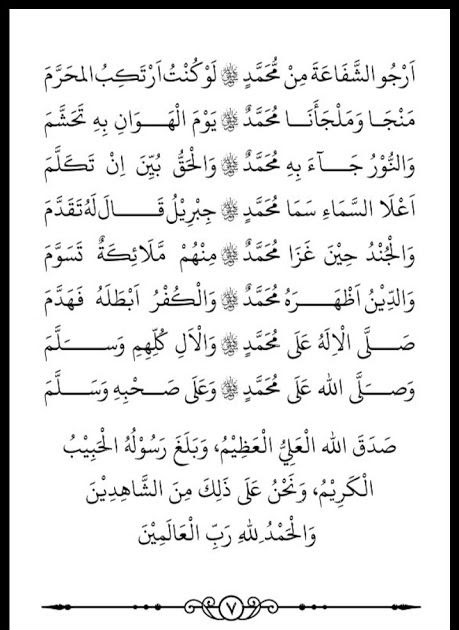 اَرْجُو الشَّفَاعَةَ مِنْ مُّحَمَّدٍ ﷺ لَوْ كُنْتُ اَرْتَكِبُ المحَرَّمَ
مَنْجَا وَمَلْجَأَنَا مُحَمَّدٌ ﷺ يَوْمَ الْهَوَانِ بِهِ تَحَشَّمَ
وَالنُّوْرُ جَآءَ بِهِ مُحَمَّدٌ ﷺ وَالْحَقُّ بُيِّنَ اِنْ تَكَلَّمَ
اَعْلَا السَّمَاءِ سَمَا مُحَمَّدٍ ﷺ جِبْرِيْلُ قَالَ لَهُ تَقَدَّمَ
وَالْجُنْدُ حِيْنَ غَزَا مُحَمَّدٌ ﷺ مِنْهُمْ مَلَائِكَةٌ تَسَوَّمَ
وَالدِّيْنُ اَظْهَرَهُ مُحَمَّدٌ ﷺ وَالْكُفْرُ اَبْطَلَهُ فَهَدَّمَ
صَلَّى الْاِلَهُ عَلَى مُحَمَّدٍ ﷺ وَالْاَلِ كُلِّهِمِ وَسَلَّمَ
وَصَلَّى الله عَلَى مُحَمَّدٍ ﷺ وَعَلَى صَحْبِهِ وَسَلَّمَ
صَدَقَ الله الْعَلِيُّ الْعَظِيْمُ، وَبَلَغَ رَسُوْلُهُ الْحَبِيْبُ
الْكَرِيْمُ، وَنَحْنُ عَلَى ذَلِكَ مِنَ الشَّاهِدِيْنَ
وَالْحَمْدُ لِلهِ رَبِّ الْعَالَمِيْنَ
٧